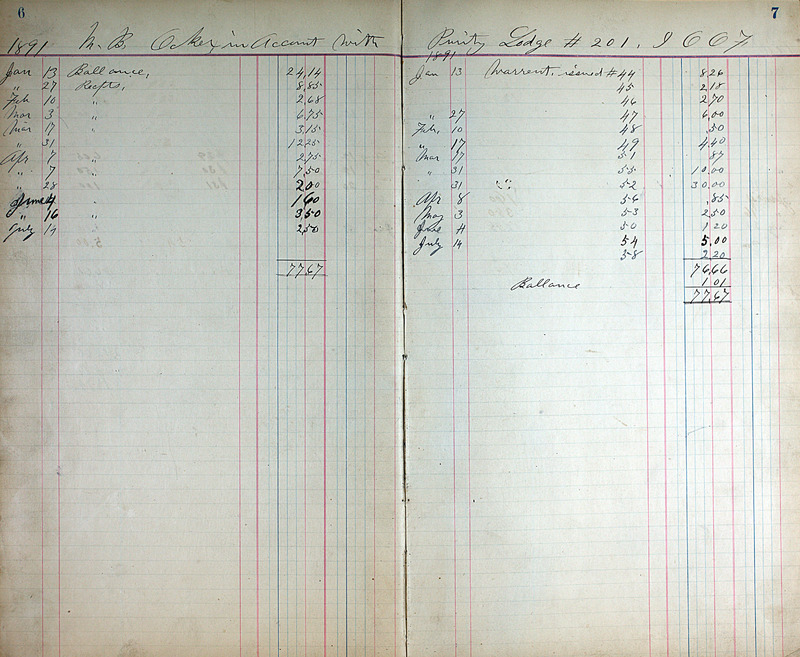 6
1891 M. B. Ocker in Account with
Jan 13 Ballance, 24,14
" 27 Recpts, 8,85
Feb 10 " 2,68
Mar 3 " 6,75
Mar 17 " 3,15
" 31 12,25
Apr 7 " 2,75
" 7 " 7,50
" 28 " 2,00
June 4 " 1,60
" 16 " 3,50
July 14 " 2,50
77,67
7
Purity Lodge # 201, I O O F
1891
Jan 13 Warrent, issued # 44 8 26
45 2 18
46 2 70
" 27 47 6,00
Feb, 10 48 ,50
" 17 49 4 40
Mar 17 51 ,87
" 31 55 10,00
31 52 30,00
Apr 8 56 ,85
May 3 53 2 50
June 4 50 1 20
July 14 54 5,00
58 2 20
76,66
Ballance 1 01
77,67